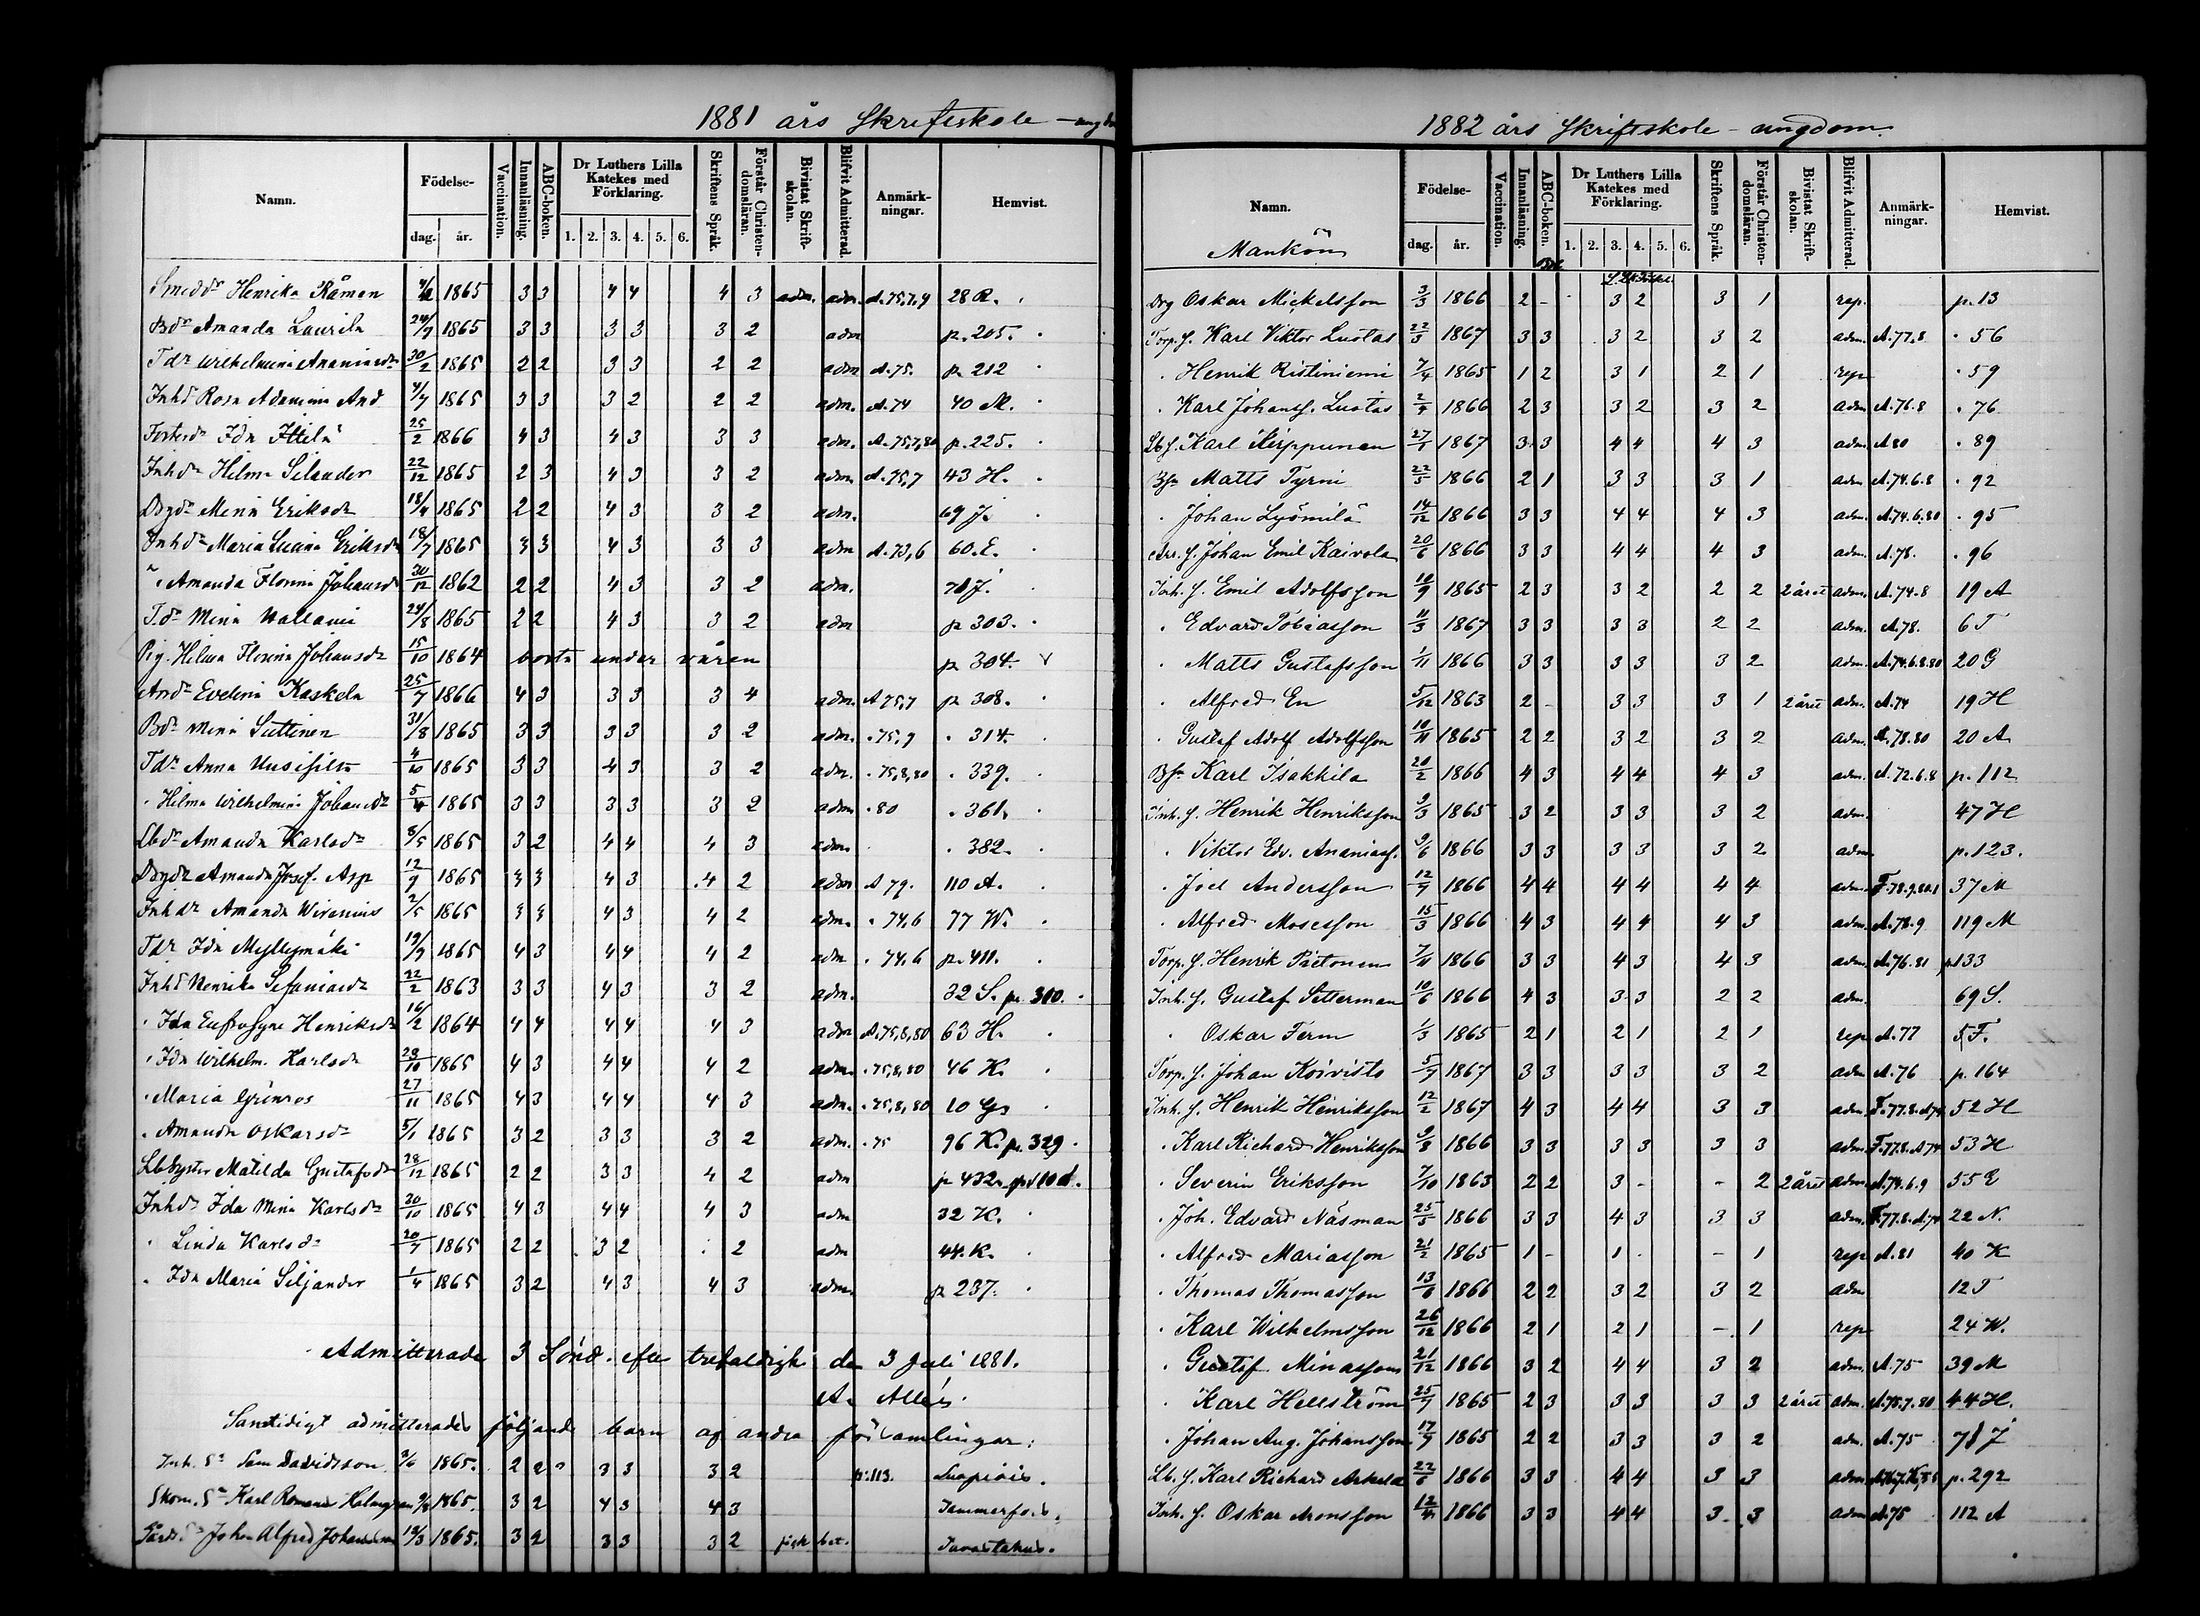 1881 års Skriftskole - ungdom
Namn. Födelse- dag. år. Vaccination. Innanläsning. ABC-boken. Dr Luthers Lilla Katekes med Förklaring. 1. 2. 3. 4. 5. 6. Skriftens Språk. Förstår Christendomsläran. Bivistat Skriftskolan. Blifvit Admitterad. Anmärkningar. Hemvist.
Henrika Råmen 1865 3 3 4 4 4 3 adm. adm. A. 75,7,9 28 R.
Bdr Amanda Laurila 24/7 1865 3 3 3 3 3 2 adm p. 205.
Tdr Wilhelmina Ananiasdr 30/2 1865 2 2 3 3 2 2 adm A. 75. p. 212
Rosa Adamina And 1865 3 3 3 2 2 2 adm. A. 74 40 M.
Ida Ittilä 25/2 1866 4 3 4 3 3 3 adm. A. 75,7,80 p. 225.
Inhdr Hilma Silander 22/12 1865 2 3 4 3 3 2 adm. A. 75,7 43 H.
Mina Eriksdr 18/4 1865 2 2 4 3 3 2 adm. 69 J.
Inhdr Maria Lucina Eriksdr 18/7 1865 3 3 4 3 3 3 adm A. 73,6 60. E.
Amanda Florina Johansdr 30/12 1862 2 2 4 3 3 2 adm. 71 J.
Tdr Mina 24/8 1865 2 2 4 3 3 2 adm p. 303.
Pig. Hilma Florina Johansdr 15/10 1864 borta under våren p. 304.
Evelina Kaskela 25/7 1866 4 3 3 3 3 4 adm. A 75,7 p. 308.
Bdr Mina Suttinen 31/8 1865 3 3 3 3 3 2 adm. 75,9 314.
Tdr Anna Uusisilta 4/10 1865 3 3 4 3 3 2 adm. 75,8,80 339.
Hilma Wilhelmina Johansdr 5/4 1865 3 3 3 3 3 2 adm 80 361.
Lbdr Amanda Karlsdr 8/5 1865 3 2 4 4 4 3 adm. 382.
Amanda Josef. Asp 12/9 1865 3 3 4 3 4 2 adm A 79. 110 A.
Inhdr Amanda Wirenius 2/5 1865 3 3 4 3 4 2 adm. 74,6 77 W.
Tdr Ida Myllymäki 19/9 1865 4 3 4 4 4 2 adm 74,6 p. 411.
Henrika Sefaniasdr 22/2 1863 3 3 4 3 3 2 adm. 32 S. p. 310.
Ida Eufrosyne Henriksdr 16/2 1864 4 4 4 4 4 3 adm A,75,8,80 63 H.
Ida Wilhelm. Karlsdr 28/10 1865 4 3 4 4 4 2 adm. 75,8,80 46 K.
Maria Grönros 27/11 1865 4 3 4 4 4 3 adm. 75,8,80 10 G
Amanda Oskarsdr 5/1 1865 3 2 3 3 3 2 adm. 75 96 K. p. 329
Lbsyster Matilda Gustafsdr 28/12 1865 2 2 3 3 4 2 adm p 432
Inhdr Ida Mina Karlsdr 20/10 1865 4 3 4 4 4 3 adm 32 K.
Linda Karlsdr 20/7 1865 2 2 3 2 2 adm 44. K.
Ida Maria Siljander 1/4 1865 3 2 4 3 4 3 adm. p 237.
Admitterade 3 Sönd. efter trefaldigh den 3 Juli 1881.
A. Allés.
Samtidigt admitterades följande barn af andra församlingar:
Inh. Sn Sam Davidsson 1865. 2 2 3 3 3 2 p. 113.
Karl Romanus 1865. 3 2 4 3 4 3 Tammerfors.
Johan Alfred Johansson 1865. 3 2 3 3 3 2 fick bet. Tavastehus.
1882 års Skriftskole - ungdom.
Namn. Födelse- dag. år. Vaccination. Innanläsning. ABC-boken. Dr Luthers Lilla Katekes med Förklaring. 1. 2. 3. 4. 5. 6. Skriftens Språk. Förstår Christendomsläran. Bivistat Skriftskolan. Blifvit Admitterad. Anmärkningar. Hemvist.
Mankön
Drg Oskar Mickelsson 3/3 1866 2 - 3 2 3 1 rep. p. 13
Torp. s. Karl Viktor Luotas 22/3 1867 3 3 3 2 3 2 adm. A. 77,8 56
Henrik Ristiniemi 7/4 1865 1 2 3 1 2 1 rep 59
Karl Johanss. Luotas 2/9 1866 2 3 3 2 3 2 adm A. 76.8 76
Lb s. Karl Kirppunen 27/1 1867 3 3 4 4 4 3 adm. A 80 89
Matts Tyrni 22/5 1866 2 1 3 3 3 1 adm A. 74.6.8 92
Johan Lyömilä 14/12 1866 3 3 4 4 4 3 adm. A. 74.6.80 95
Johan Emil Kaivola 20/6 1866 3 3 4 4 4 3 adm. A. 78. 96
Inh. s. Emil Adolfsson 10/9 1865 2 3 3 2 2 2 2 året adm. A. 74.8 19 A
Edvard Tobiasson 11/3 1867 3 3 3 3 2 2 adm. A. 78. 6 T
Matts Gustafsson 1/11 1866 3 3 3 3 3 2 adm. A. 74.6.8.80 20 G
Alfred En 5/12 1863 2 - 3 3 3 1 2 året adm. A. 74 19 H
Gustaf Adolf Adolfsson 10/11 1865 2 2 3 2 3 2 adm. A. 78.80 20 A
Karl Isakkila 20/2 1866 4 3 4 4 4 3 adm. A. 72.6.8 p. 112
Inh. s. Henrik Henriksson 9/3 1865 3 2 3 3 3 2 adm. 47 H
Viktor Edv. Ananiass. 9/6 1866 3 3 3 3 3 2 adm p. 123.
Joel Andersson 12/9 1866 4 4 4 4 4 4 adm. F. 78.9.80.1 37 M
Alfred Mosesson 15/3 1866 4 3 4 4 4 3 adm. A. 78.9 119 M
Torp. s. Henrik Päetonen 7/11 1866 3 3 4 3 4 3 adm. A. 76.81 p 133
Inh. s. Gustaf Setterman 10/6 1866 4 3 3 3 2 2 adm. 69 S.
Oskar Term 1/3 1865 2 1 2 1 2 1 rep A. 77
Torp. s. Johan Koivisto 5/7 1867 3 3 3 3 3 2 adm A. 76 p. 164
Inh. s. Henrik Henriksson 12/2 1867 4 3 4 4 3 3 adm. F. 77.8. A 74 52 H
Karl Richard Henriksson 9/8 1866 3 3 3 3 3 3 adm. F. 77.8. A 74 53 H
Severin Eriksson 7/10 1863 2 2 3 - - 2 2 året adm. A. 74.6.9 55 E
Joh. Edvard Näsman 25/5 1866 3 3 4 3 3 3 adm. F. 77.8. A. 74 22 N.
Alfred Mariasson 21/2 1865 1 - 1 - - 1 rep A. 81 40 K
Thomas Thomasson 13/6 1866 2 2 3 2 3 2 adm 12 T
Karl Wilhelmsson 26/12 1866 2 1 2 1 - 1 rep 24 W.
Gustaf Minasson 21/12 1866 3 2 4 4 3 2 adm. A. 75 39 M
Karl Hellström 25/7 1865 2 3 3 3 3 3 2 året adm. A. 75.7.80 44 H.
Johan Aug. Johansson 17/9 1865 2 2 3 3 3 2 adm. A. 75 71 J
Lb. s. Karl Richard Arkela 22/6 1866 3 3 4 4 3 3 adm p. 292
Inh. s. Oskar Aronsson 12/4 1866 3 3 4 4 3 3 adm A. 75 112 A